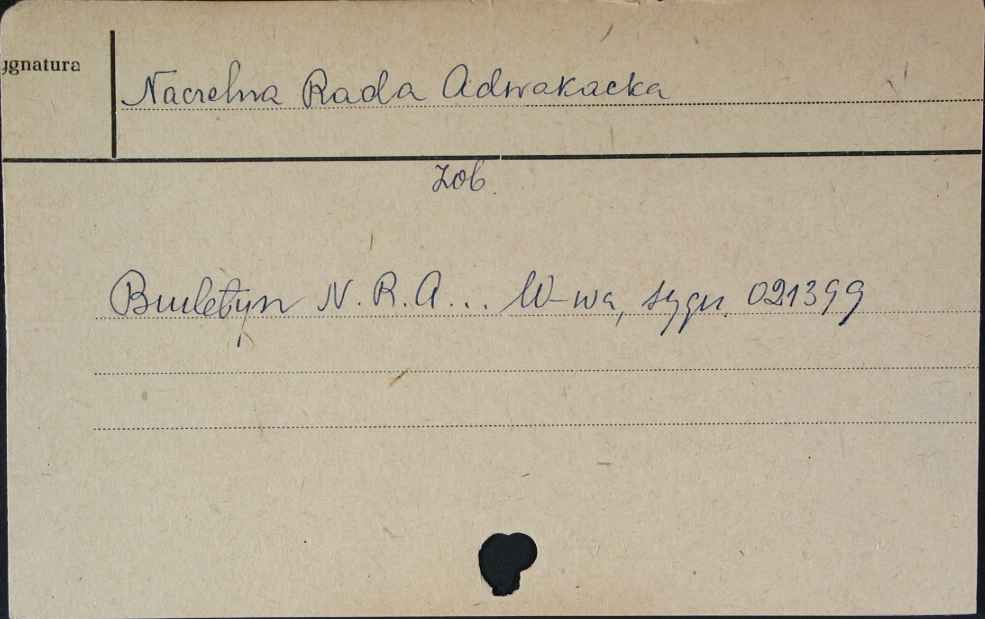 ygnatura
Naczelna Rada Adwokacka
zob.
Biuletyn N.R.A... W-wa, sygn. 021399